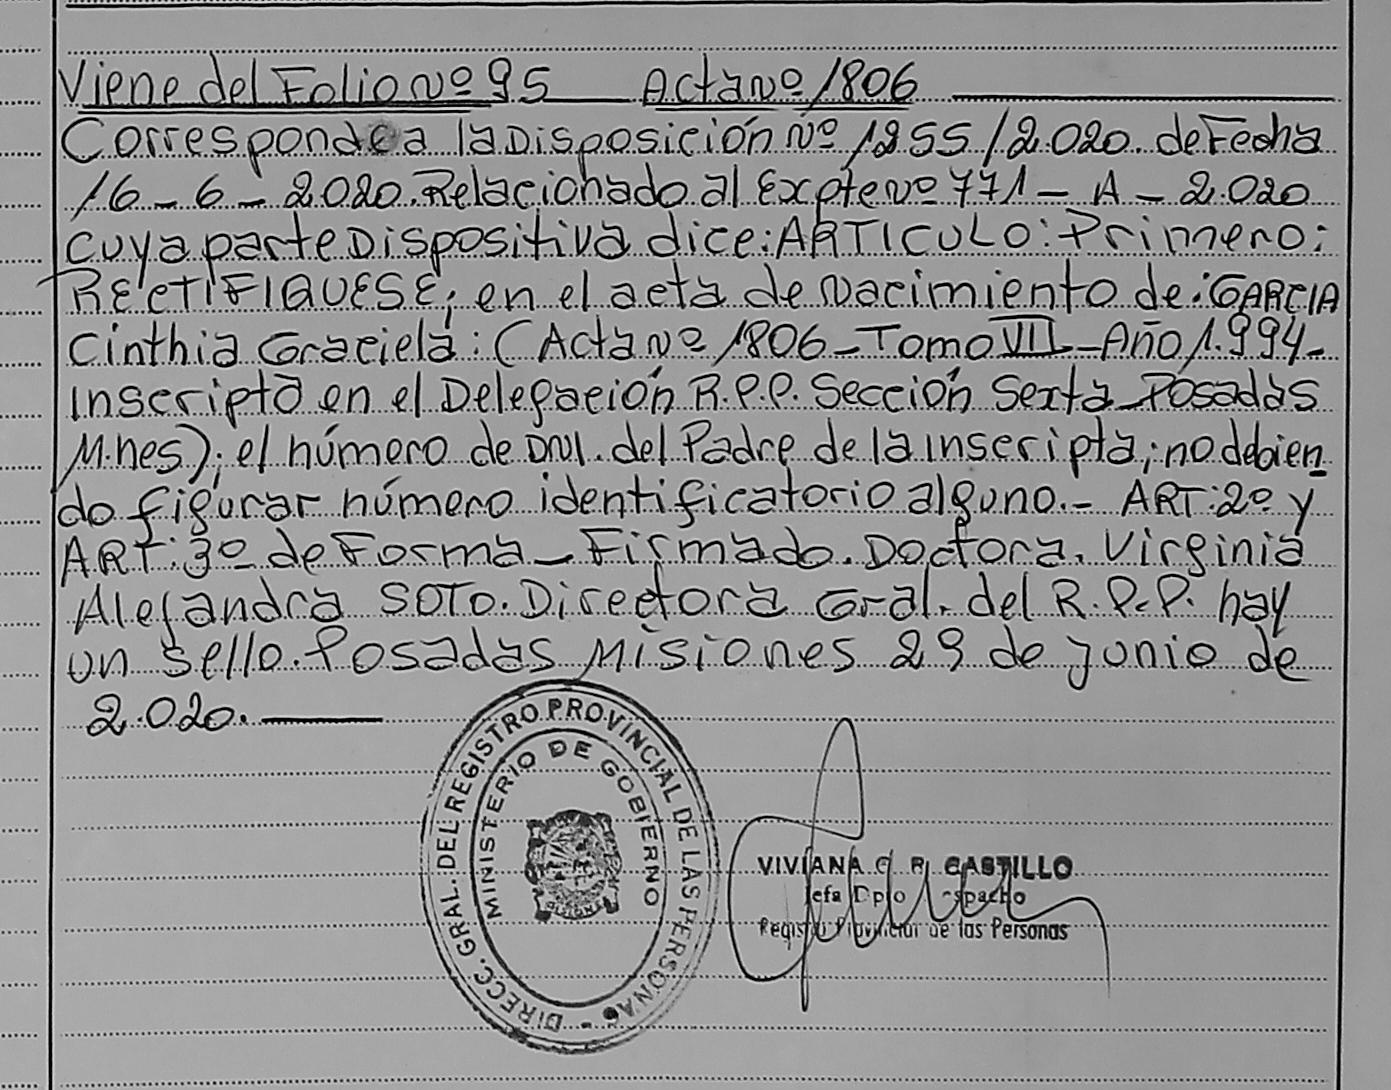 Viene del Folio Nº 95 Acta Nº 1806
Corresponde a la Disposición Nº 1255/2.020. de Fecha
16-6-2.020. Relacionado al Expte Nº 771-A-2.020
cuya parte Dispositiva dice: ARTICULO: Primero:
RECTIFIQUESE; en el acta de Nacimiento de: GARCIA
Cinthia Graciela: (Acta Nº 1806-Tomo VII-Año 1.994-
Inscripta en el Delegación R.P.P. Sección Sexta-Posadas
M.nes); el número de DNI. del Padre de la inscripta; no debien
do figurar número identificatorio alguno.- ART: 2º y
ART: 3º de Forma-Firmado. Doctora. Virginia
Alejandra SOTO. Directora Gral. del R.P.P. hay
un sello. Posadas Misiones 29 de junio de
2.020.
DIRECC. GRAL. DEL REGISTRO PROVINCIAL DE LAS PERSONAS
MINISTERIO DE GOBIERNO
VIVIANA C. R. CASTILLO
Jefa Dpto
Registro Provincial de las Personas